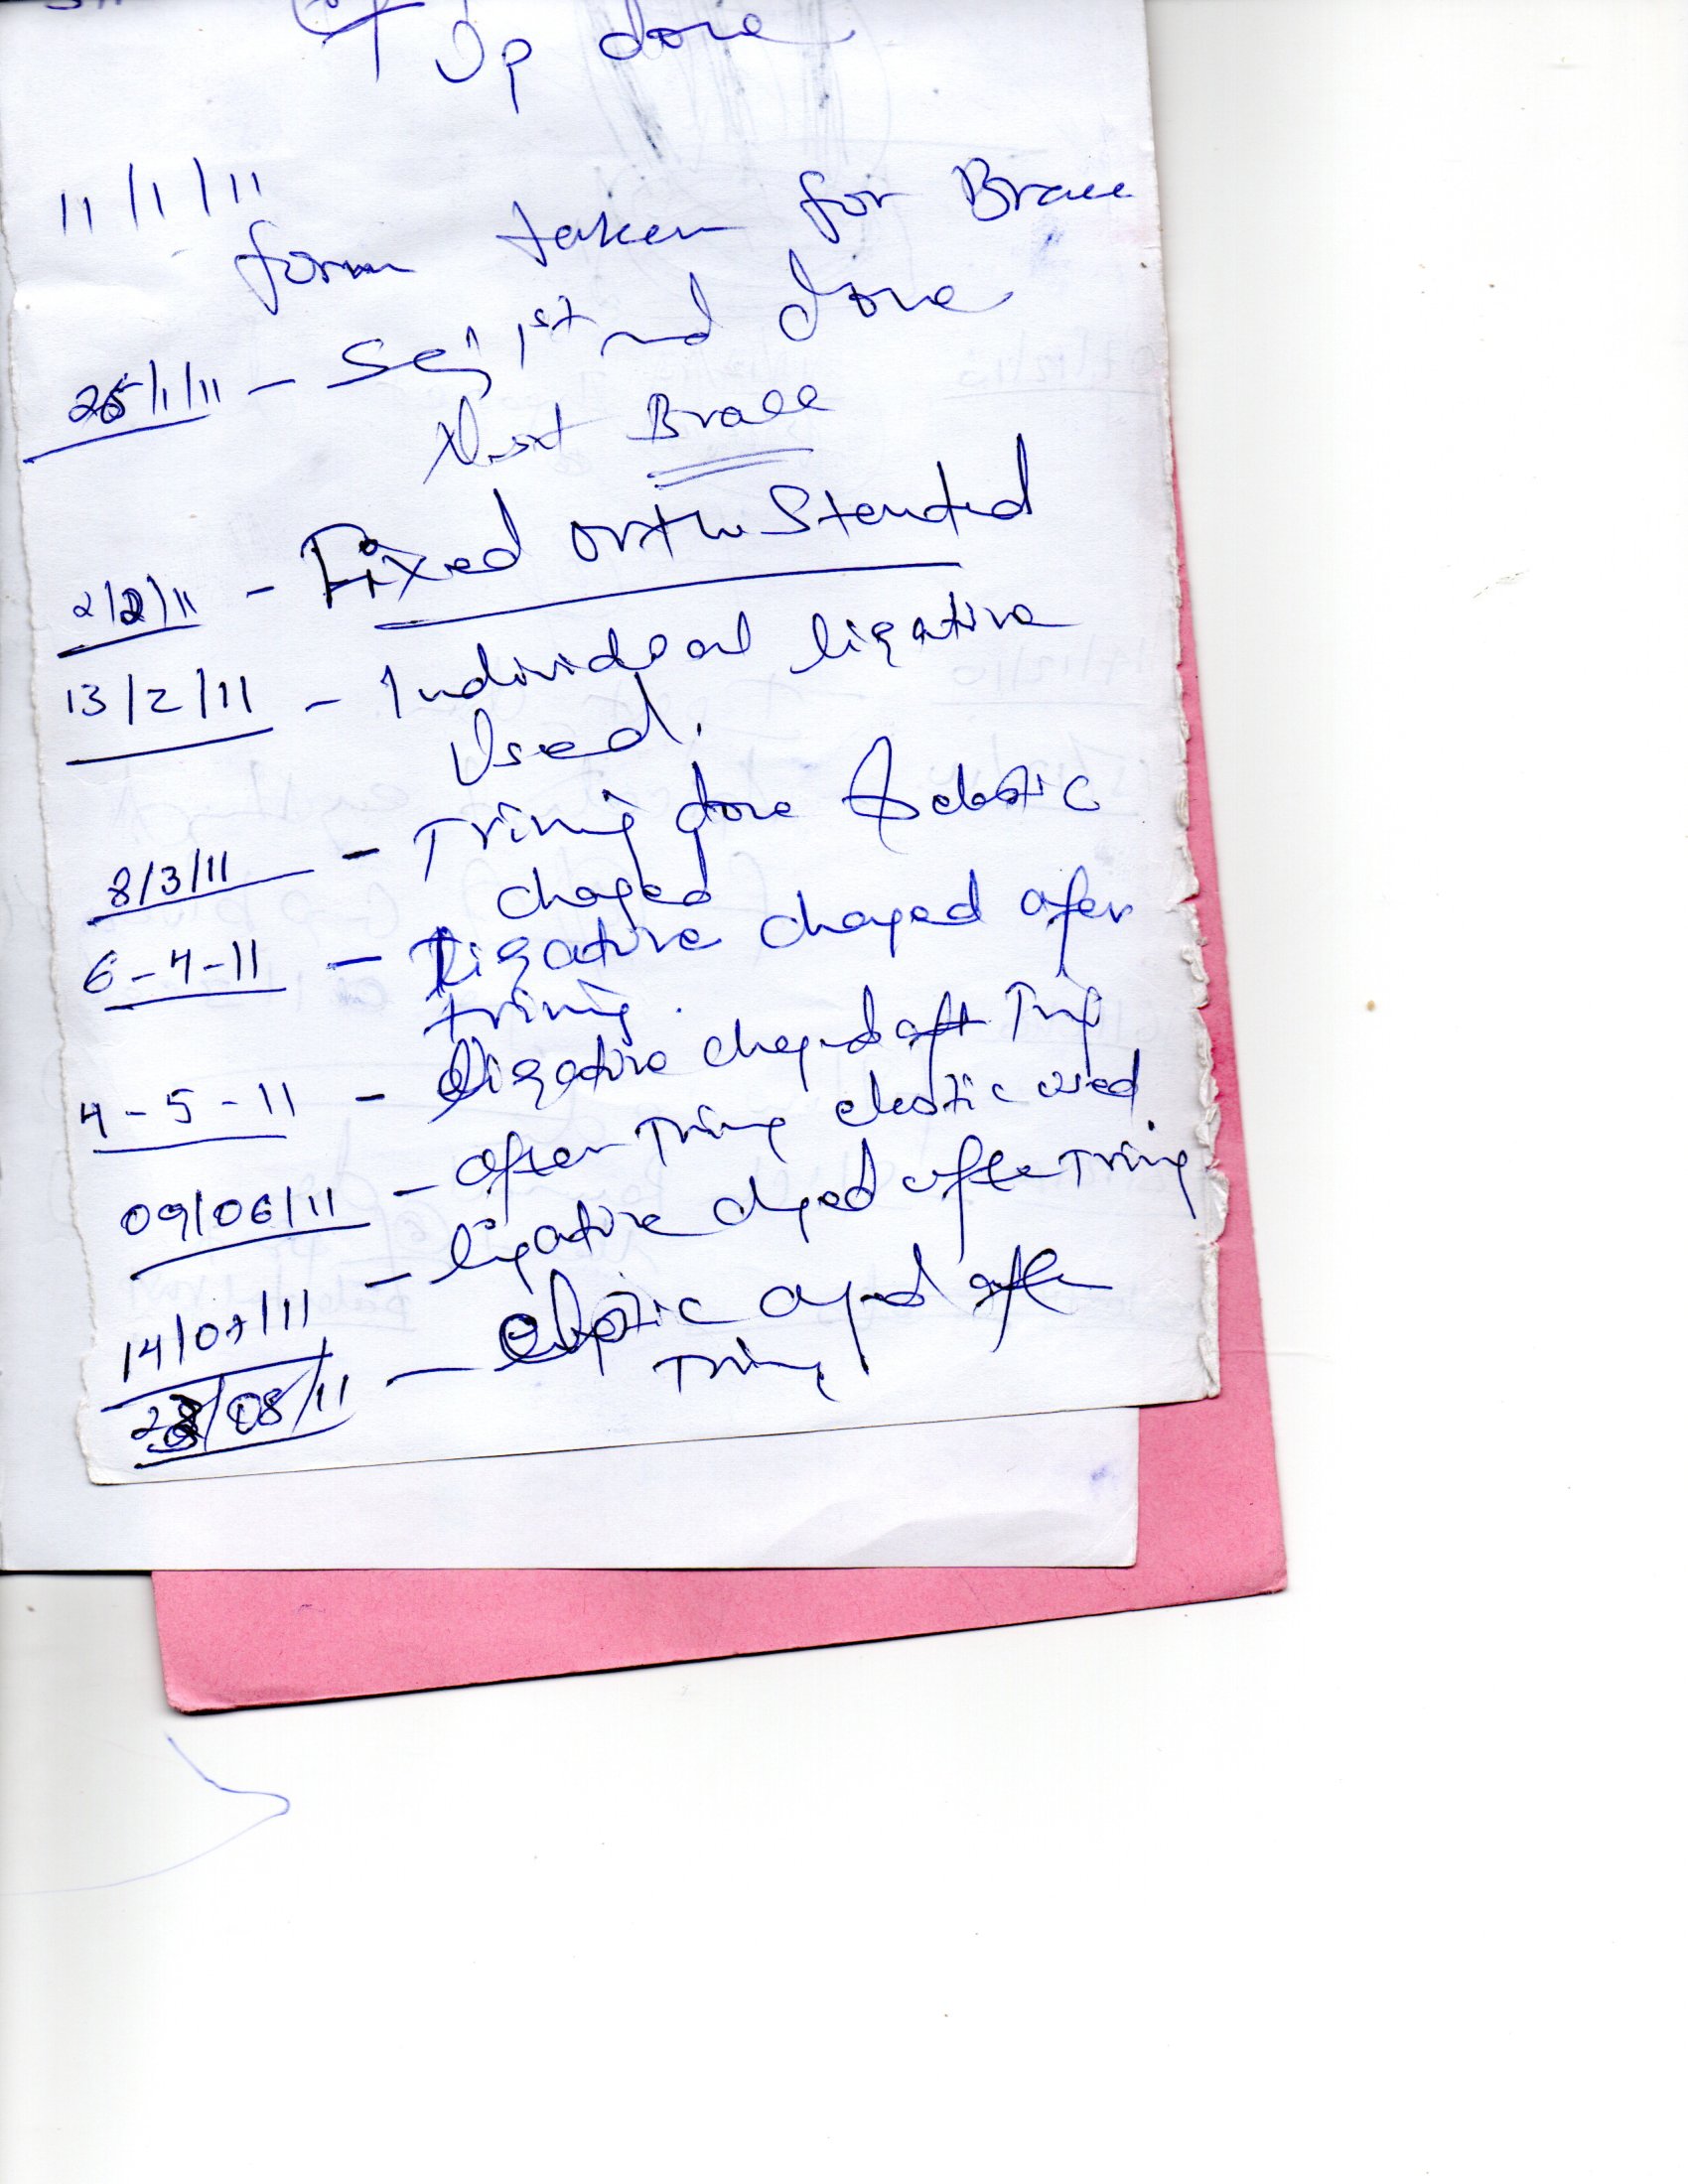 Up done
11/1/11
form taken for Brace
25/1/11 - 1st done
Next Brace
2/2/11 - Fixed ortho Started
13/2/11 - Individual ligative
Used.
8/3/11 - Trinig done & elastic
chaged
6-4-11 - Ligative chaged after
trinig.
4-5-11 - Ligative chaged aft Trig
09/06/11 - after Tring elastic used
14/07/11 - ligative chged after Tring
/08/11 - elastic after
Tring